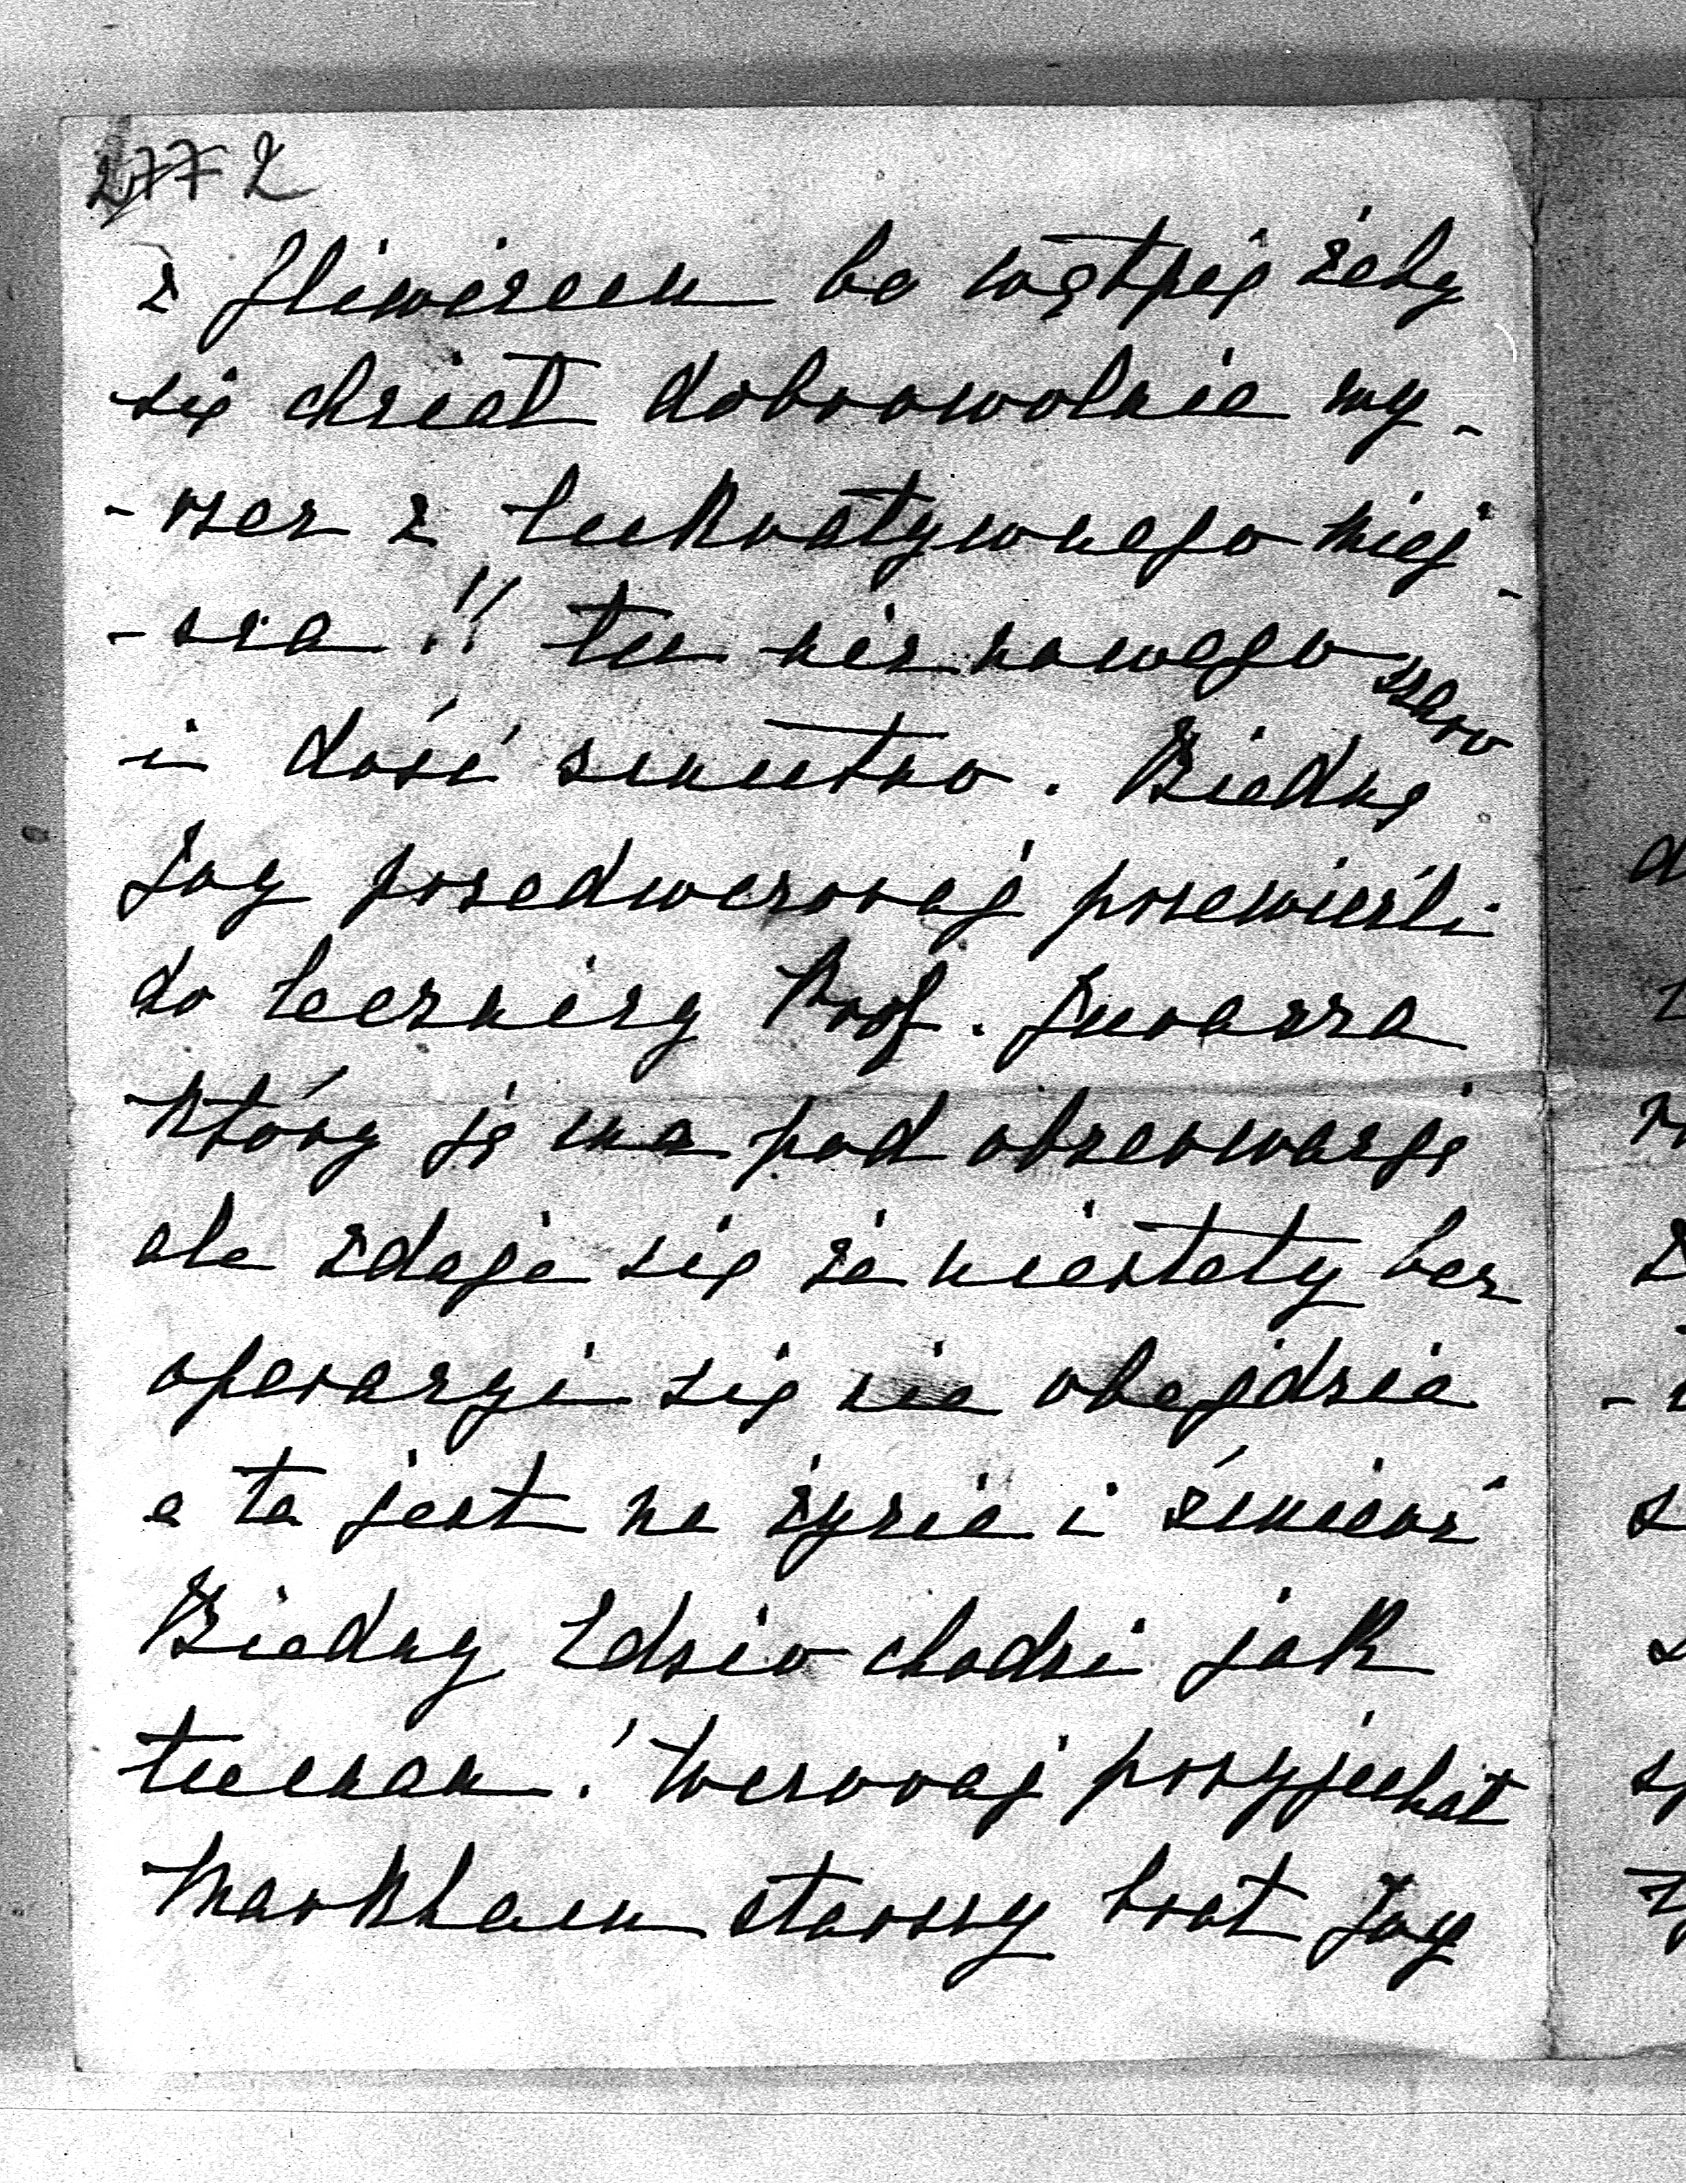 277 2
z Gliwicem bo wątpię żeby
się chciał dobrowolnie wy-
-rzec z lukratywnego miej-
-sca!! tu nic nowego szaro
i dość smutno. Biedną
Joy przedwczoraj przewieźli
do lecznicy Prof. Jurasza
który ją ma pod obserwacją
ale zdaje się że niestety bez
operacyi się nie obejdzie
a ta jest na życie i śmierć
Biedny Zdzio chodzi jak
tuman! Wczoraj przyjechał
Markham starszy brat Joy